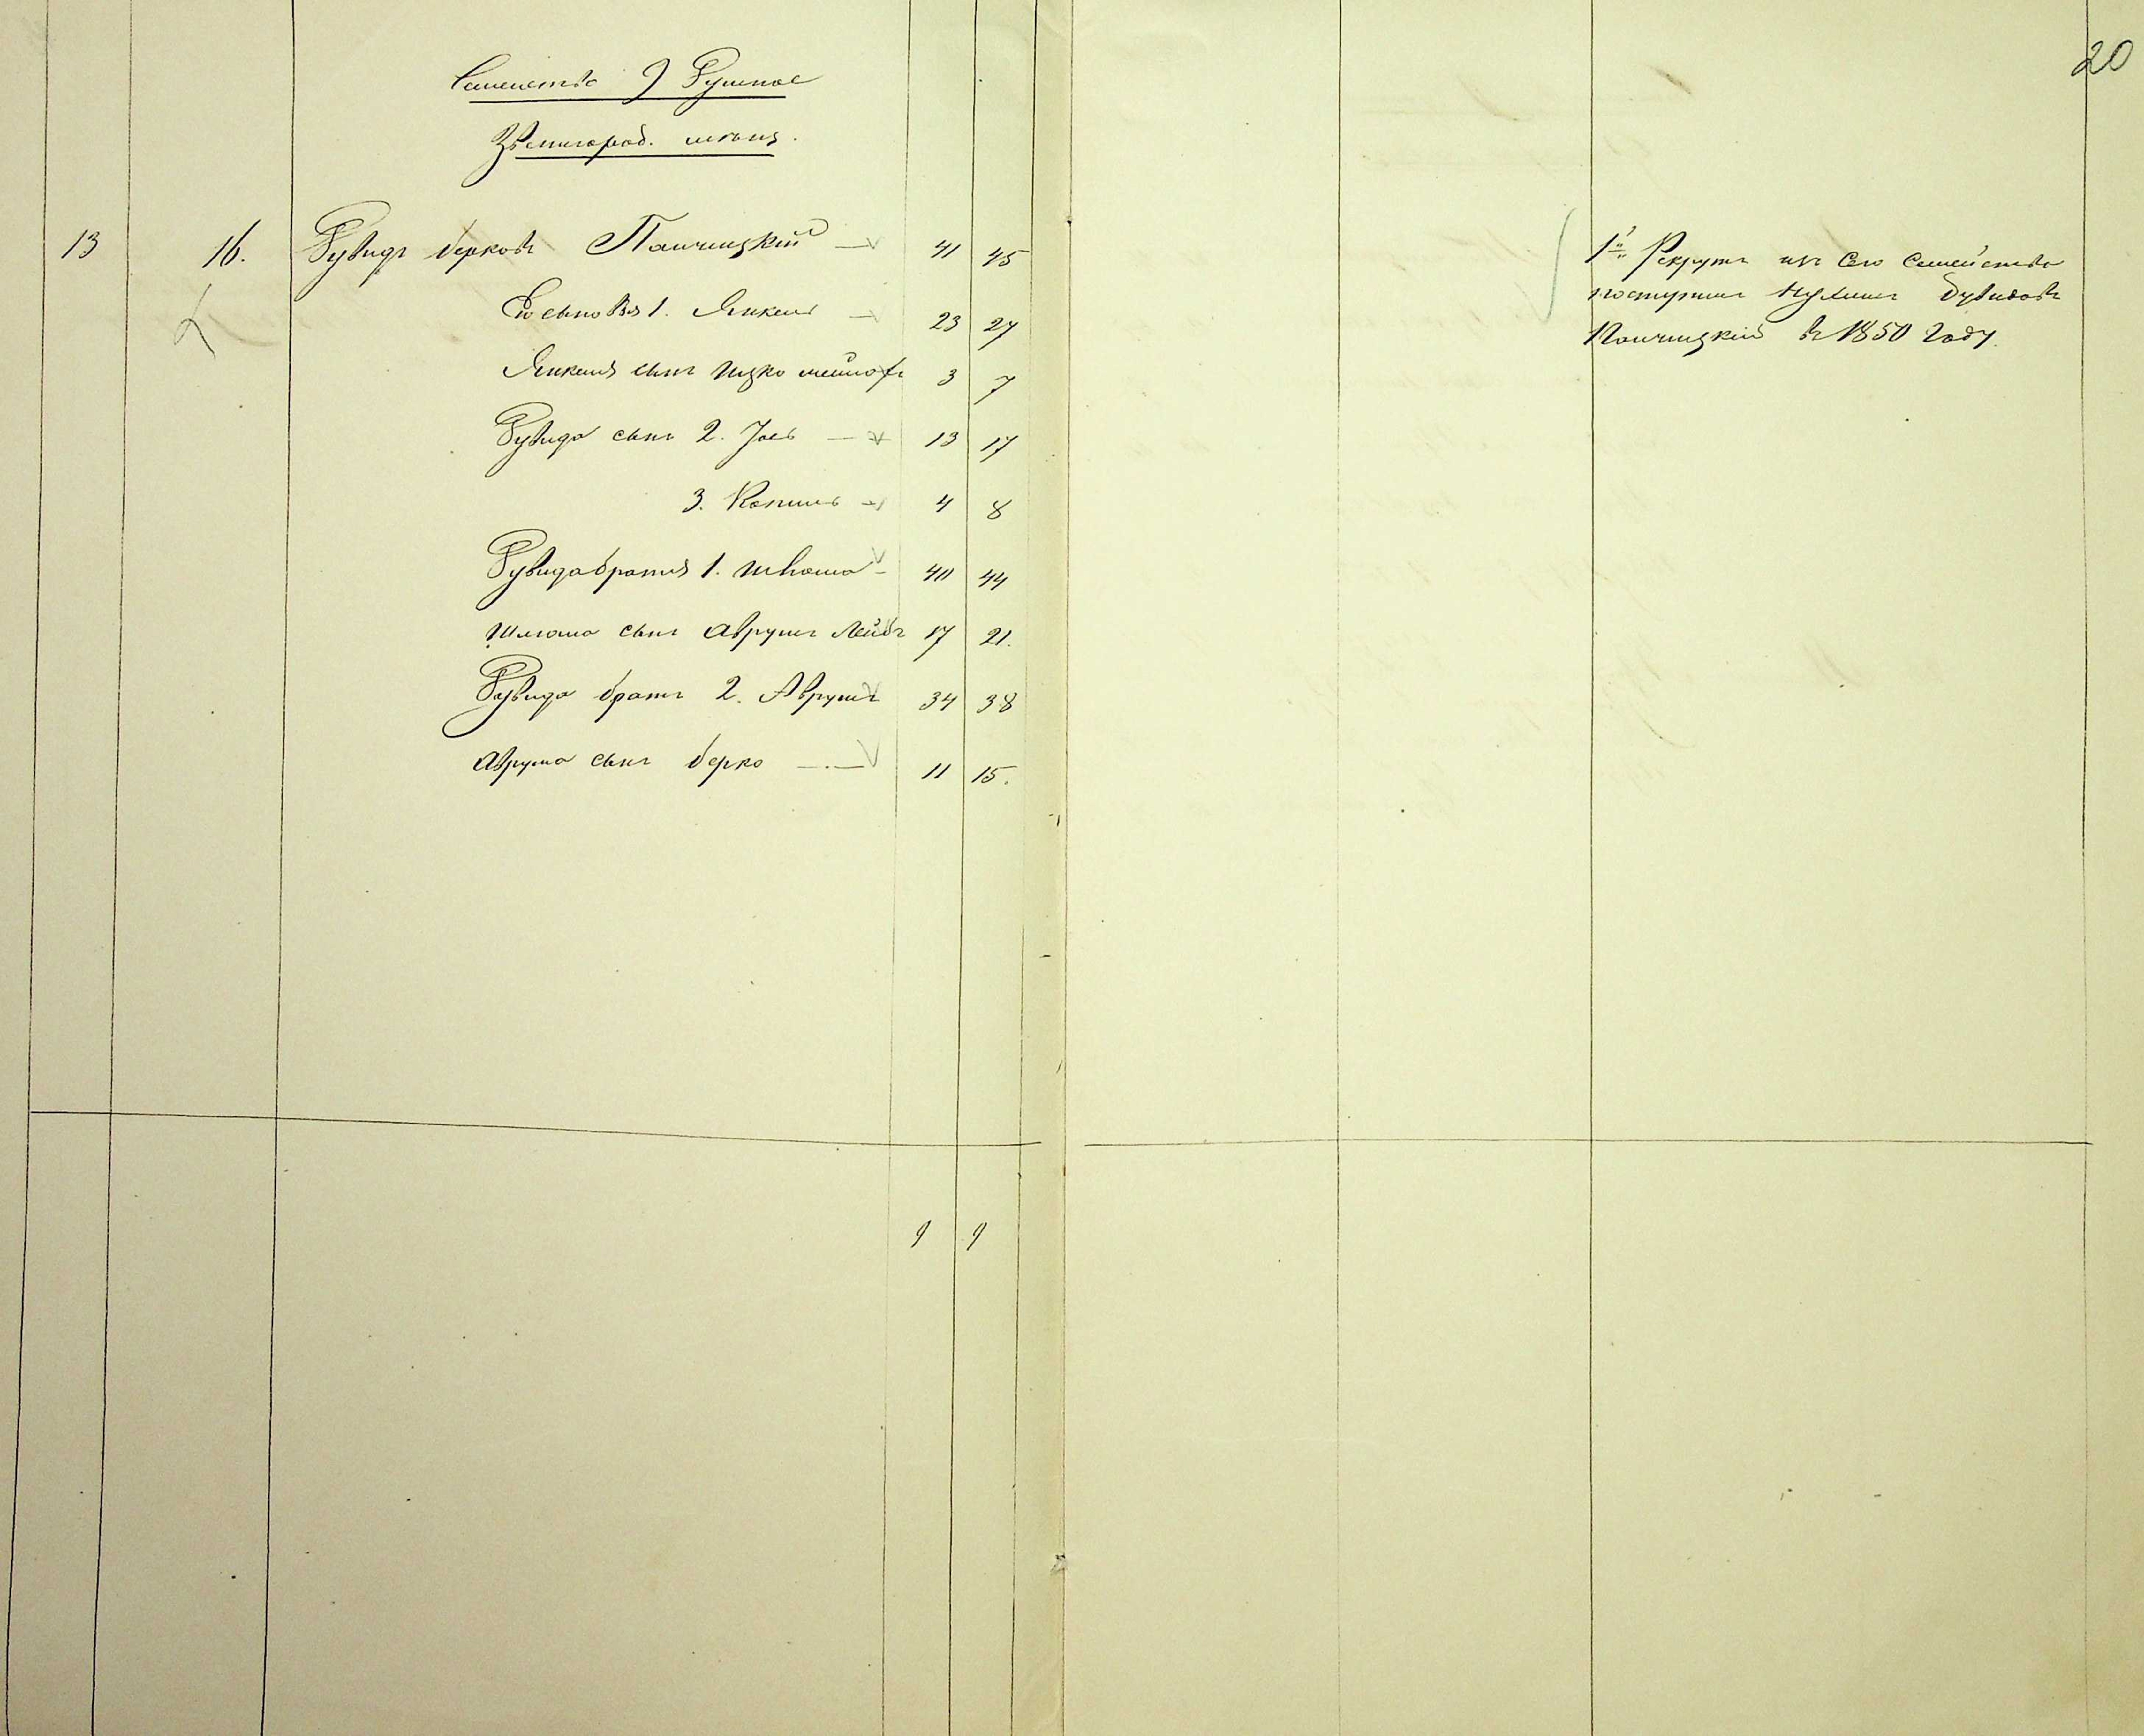 Семейство 9 Душное
Звенигород. мѣщ.
13 16. Дувидъ Берковъ Панчицкій 41 45
Его сыновья 1. Янкель 23 27
Янкеля сынъ Ицко 3 7
Дувида сынъ 2. Іось 13 17
3. Копель 4 8
Дувида братья 1. Шлома 40 44
Шлома сынъ Аврумъ Лейбъ 17 21.
Дувида братъ 2. Аврумъ 34 38
Аврума сынъ Берко 11 15.
9 9
20
1й Рекрутъ изъ Сего Семейства
поступилъ Дувидовъ
Панчицкій въ 1850 году.